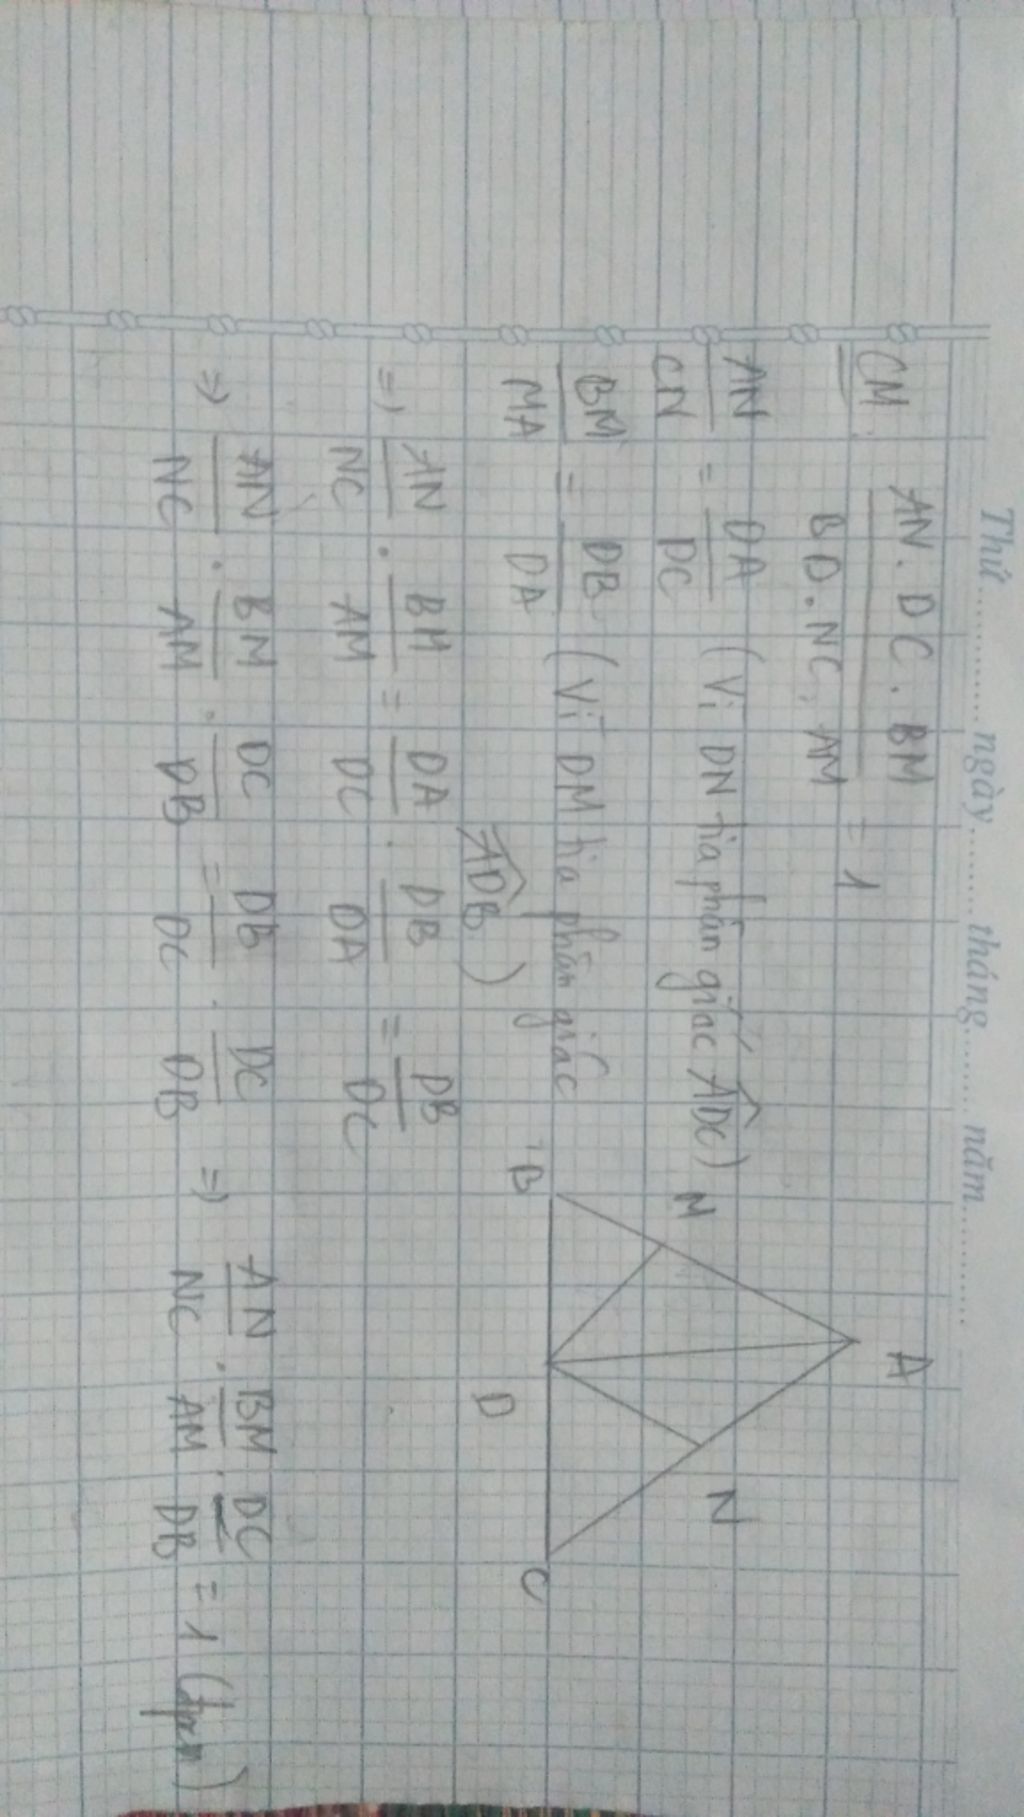 Thứ............ngày.........tháng.........năm............
CM: AN.DC.BM / BD.NC.AM = 1
AN/CN = DA/DC (Vì DN tia phân giác ADC)
BM/MA = DB/DA (Vì DM tia phân giác
ADB)
=> AN/NC . BM/AM = DA/DC . DB/DA = DB/DC
=> AN/NC . BM/AM . DC/DB = DB/DC . DC/DB => AN/NC . BM/AM . DC/DB = 1 (đpcm)
A
M
N
B
D
C